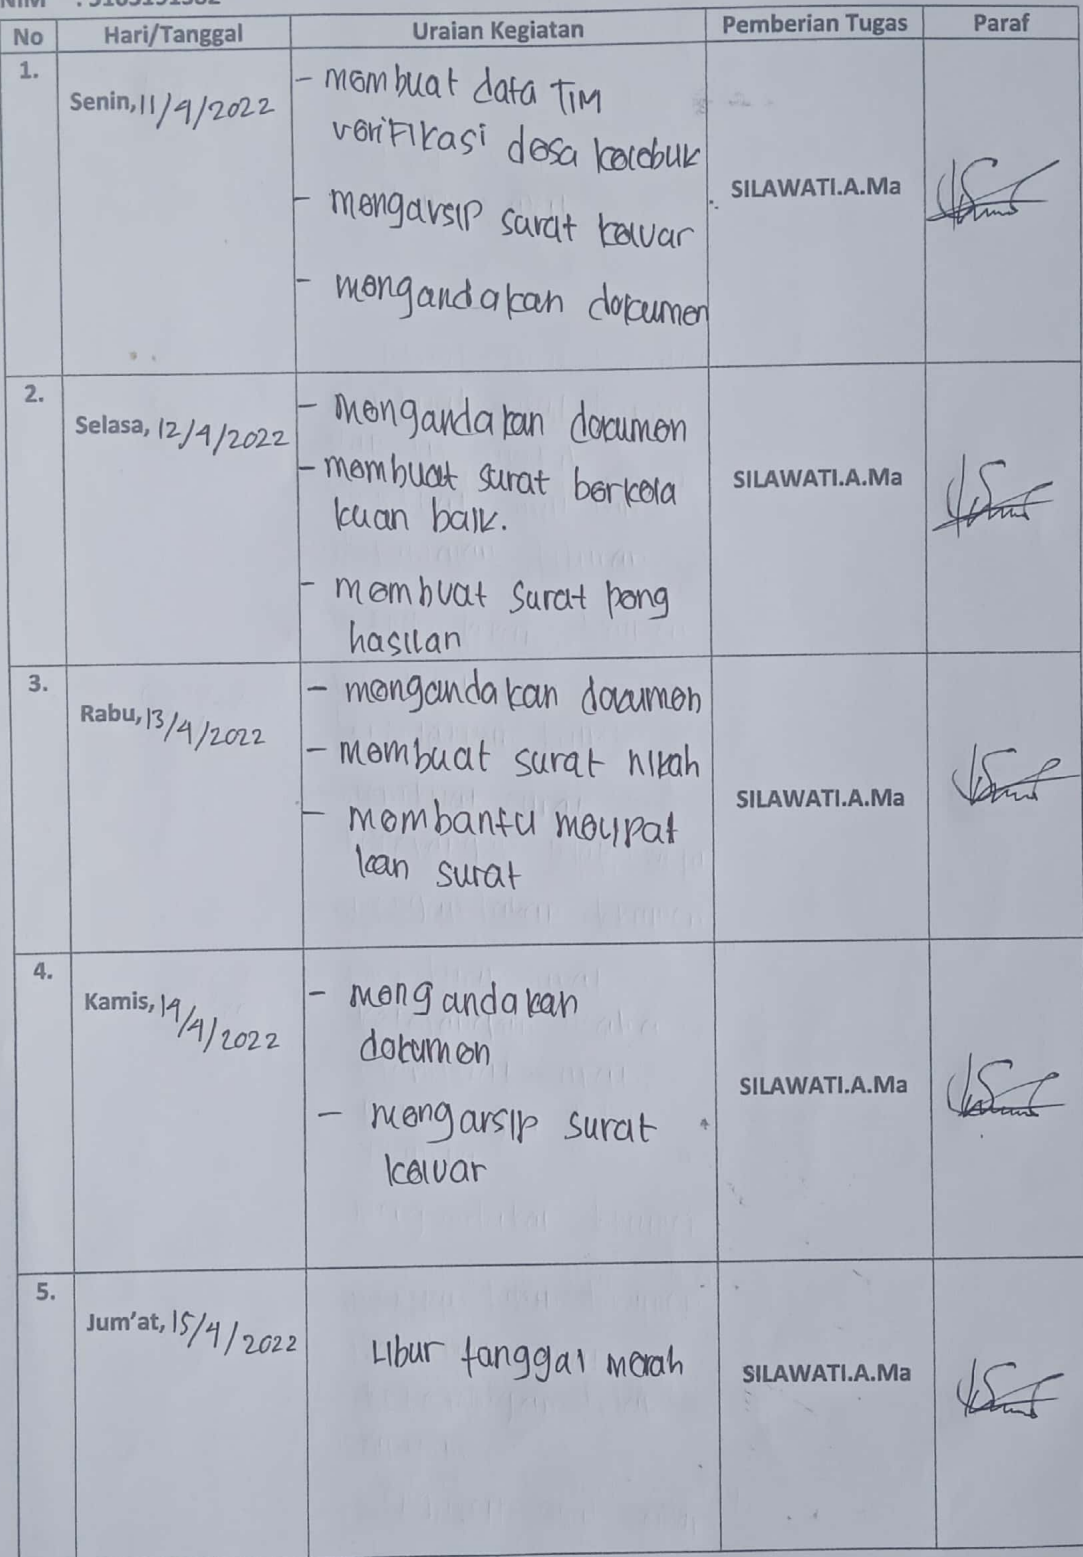 No Hari/Tanggal Uraian Kegiatan Pemberian Tugas Paraf
1.
Senin, 11/4/2022
- membuat data TIM
verifikasi desa kelebuk
- mengarsip surat keluar
- mengandakan dokumen
SILAWATI.A.Ma
2.
Selasa, 12/4/2022
- mengandakan documen
- membuat surat berkela
kuan baik.
- membuat surat peng
hasilan
SILAWATI.A.Ma
3.
Rabu, 13/4/2022
- mengandakan documen
- membuat surat nikah
- membantu
kan surat
SILAWATI.A.Ma
4.
Kamis, 14/4/2022
- mengandakan
dokumen
- mengarsip surat
keluar
SILAWATI.A.Ma
5.
Jum'at, 15/4/2022
Libur tanggal merah
SILAWATI.A.Ma